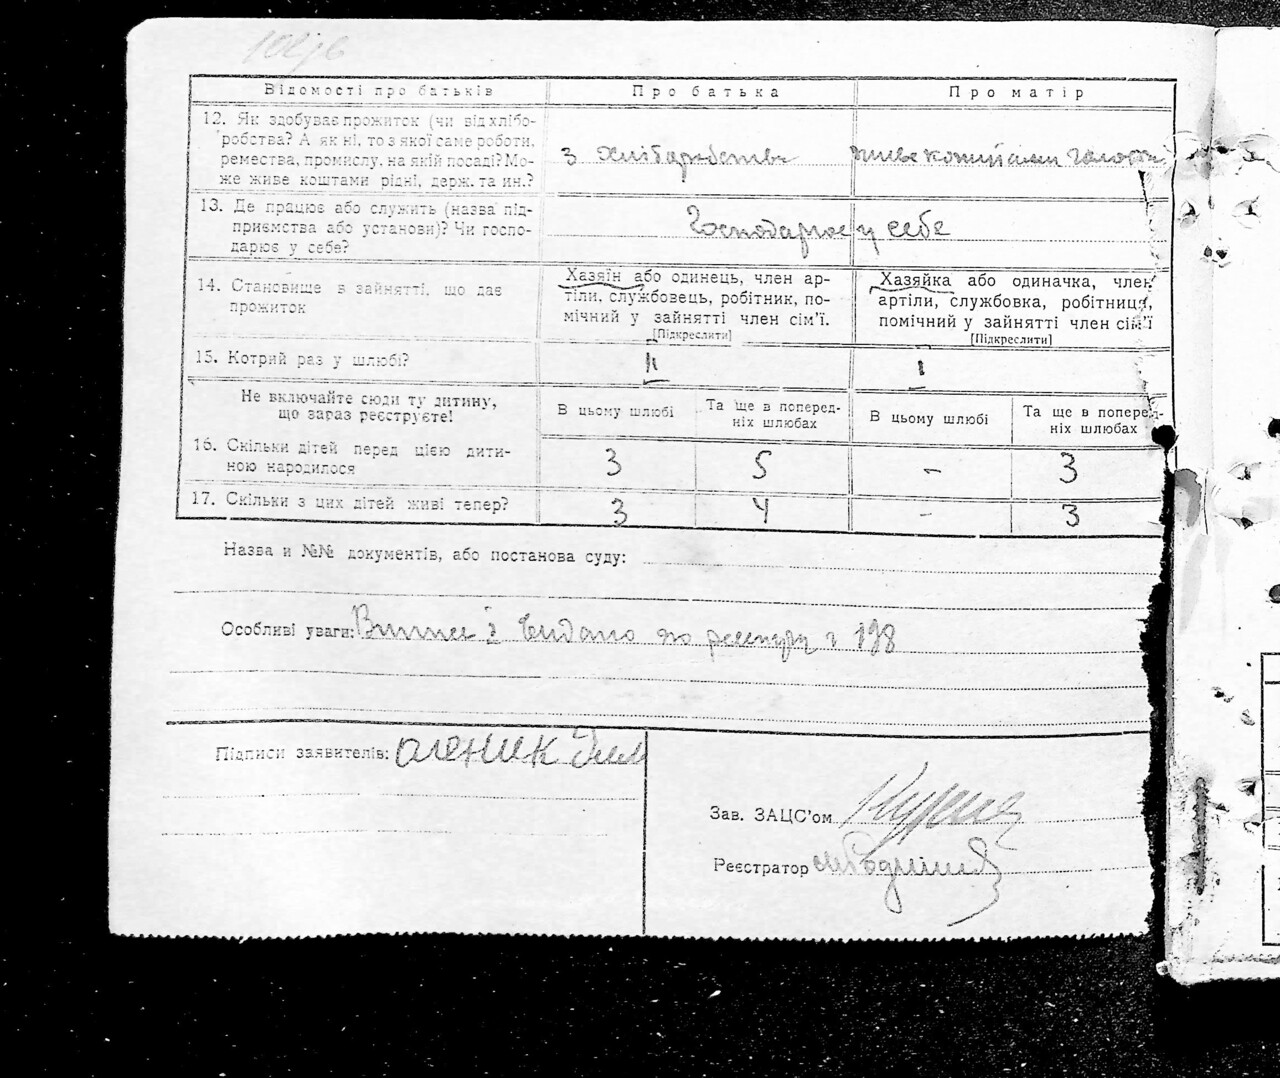 Відомості про батьків
Про батька
Про матір
12. Як здобуває прожиток (чи від хлібо-
робства? А як ні, то з якої саме роботи,
ремества, промислу, на якій посаді? Мо-
же живе коштами рідні, держ. та ин.?
з хліборобства
живе коштами
13. Де працює або служить (назва під-
приємства або установи)? Чи госпо-
дарює у себе?
Господарює у себе
14. Становище в зайнятті, що дає
прожиток
Хазяїн або одинець, член ар-
тіли, службовець, робітник, по-
мічний у зайнятті член сім’ї.
[Підкреслити]
Хазяйка або одиначка, член
артіли, службовка, робітниця,
помічний у зайнятті член сім’ї
[Підкреслити]
15. Котрий раз у шлюбі?
II
I
Не включайте сюди ту дитину,
що зараз реєструєте!
В цьому шлюбі
Та ще в поперед-
ніх шлюбах
В цьому шлюбі
Та ще в поперед-
ніх шлюбах
16. Скільки дітей перед цією дити-
ною народилося
3
5
-
3
17. Скільки з цих дітей живі тепер?
3
4
-
3
Назва и №№ документів, або постанова суду:
Особливі уваги: Видано по реєстру 198
Підписи заявителів: Олєник
Зав. ЗАЦС’ом
Реєстратор